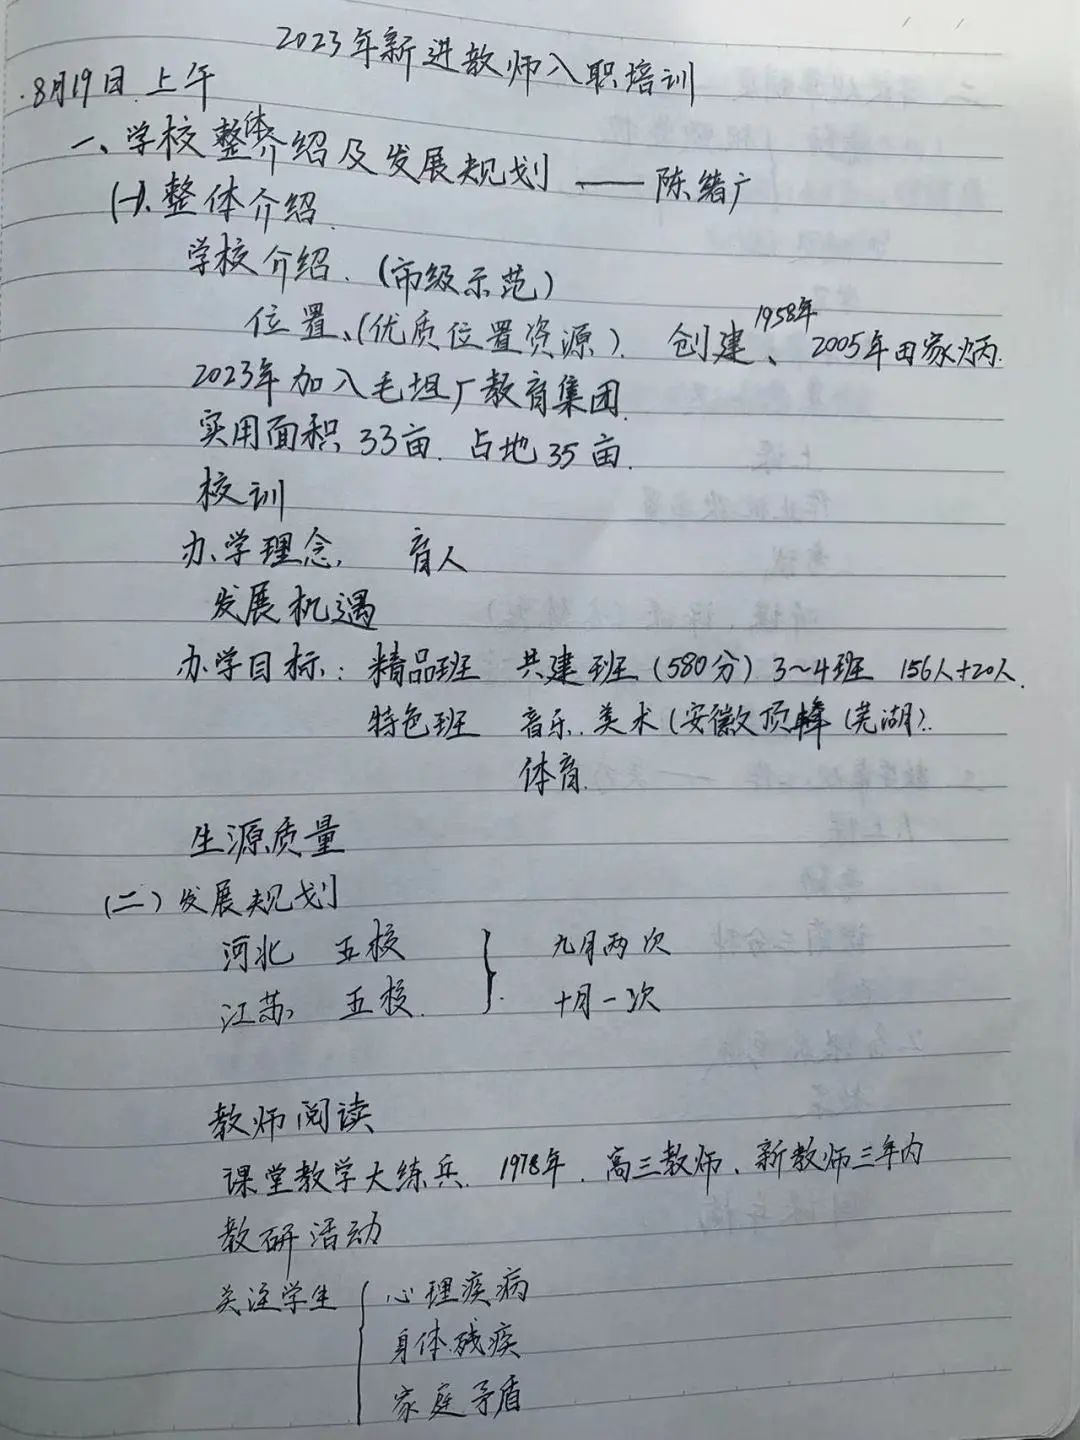 2023年新进教师入职培训
8月19日 上午
一、学校整体介绍及发展规划 —— 陈绪广
(一)、整体介绍.
学校介绍.(市级示范)
位置、(优质位置资源). 创建1958年、2005年田家炳.
2023年加入毛坦厂教育集团.
实用面积33亩. 占地35亩.
校训
办学理念, 育人
发展机遇
办学目标: 精品班 共建班(580分) 3~4班 156人+20人.
特色班 音乐.美术(安徽顶峰(芜湖).
体育.
生源质量
(二)发展规划
河北 五校 } 九月两次
江苏 五校. 十月一次
教师阅读
课堂教学大练兵. 1978年. 高三教师、新教师三年内
教研活动
关注学生 { 心理疾病
身体残疾
家庭矛盾